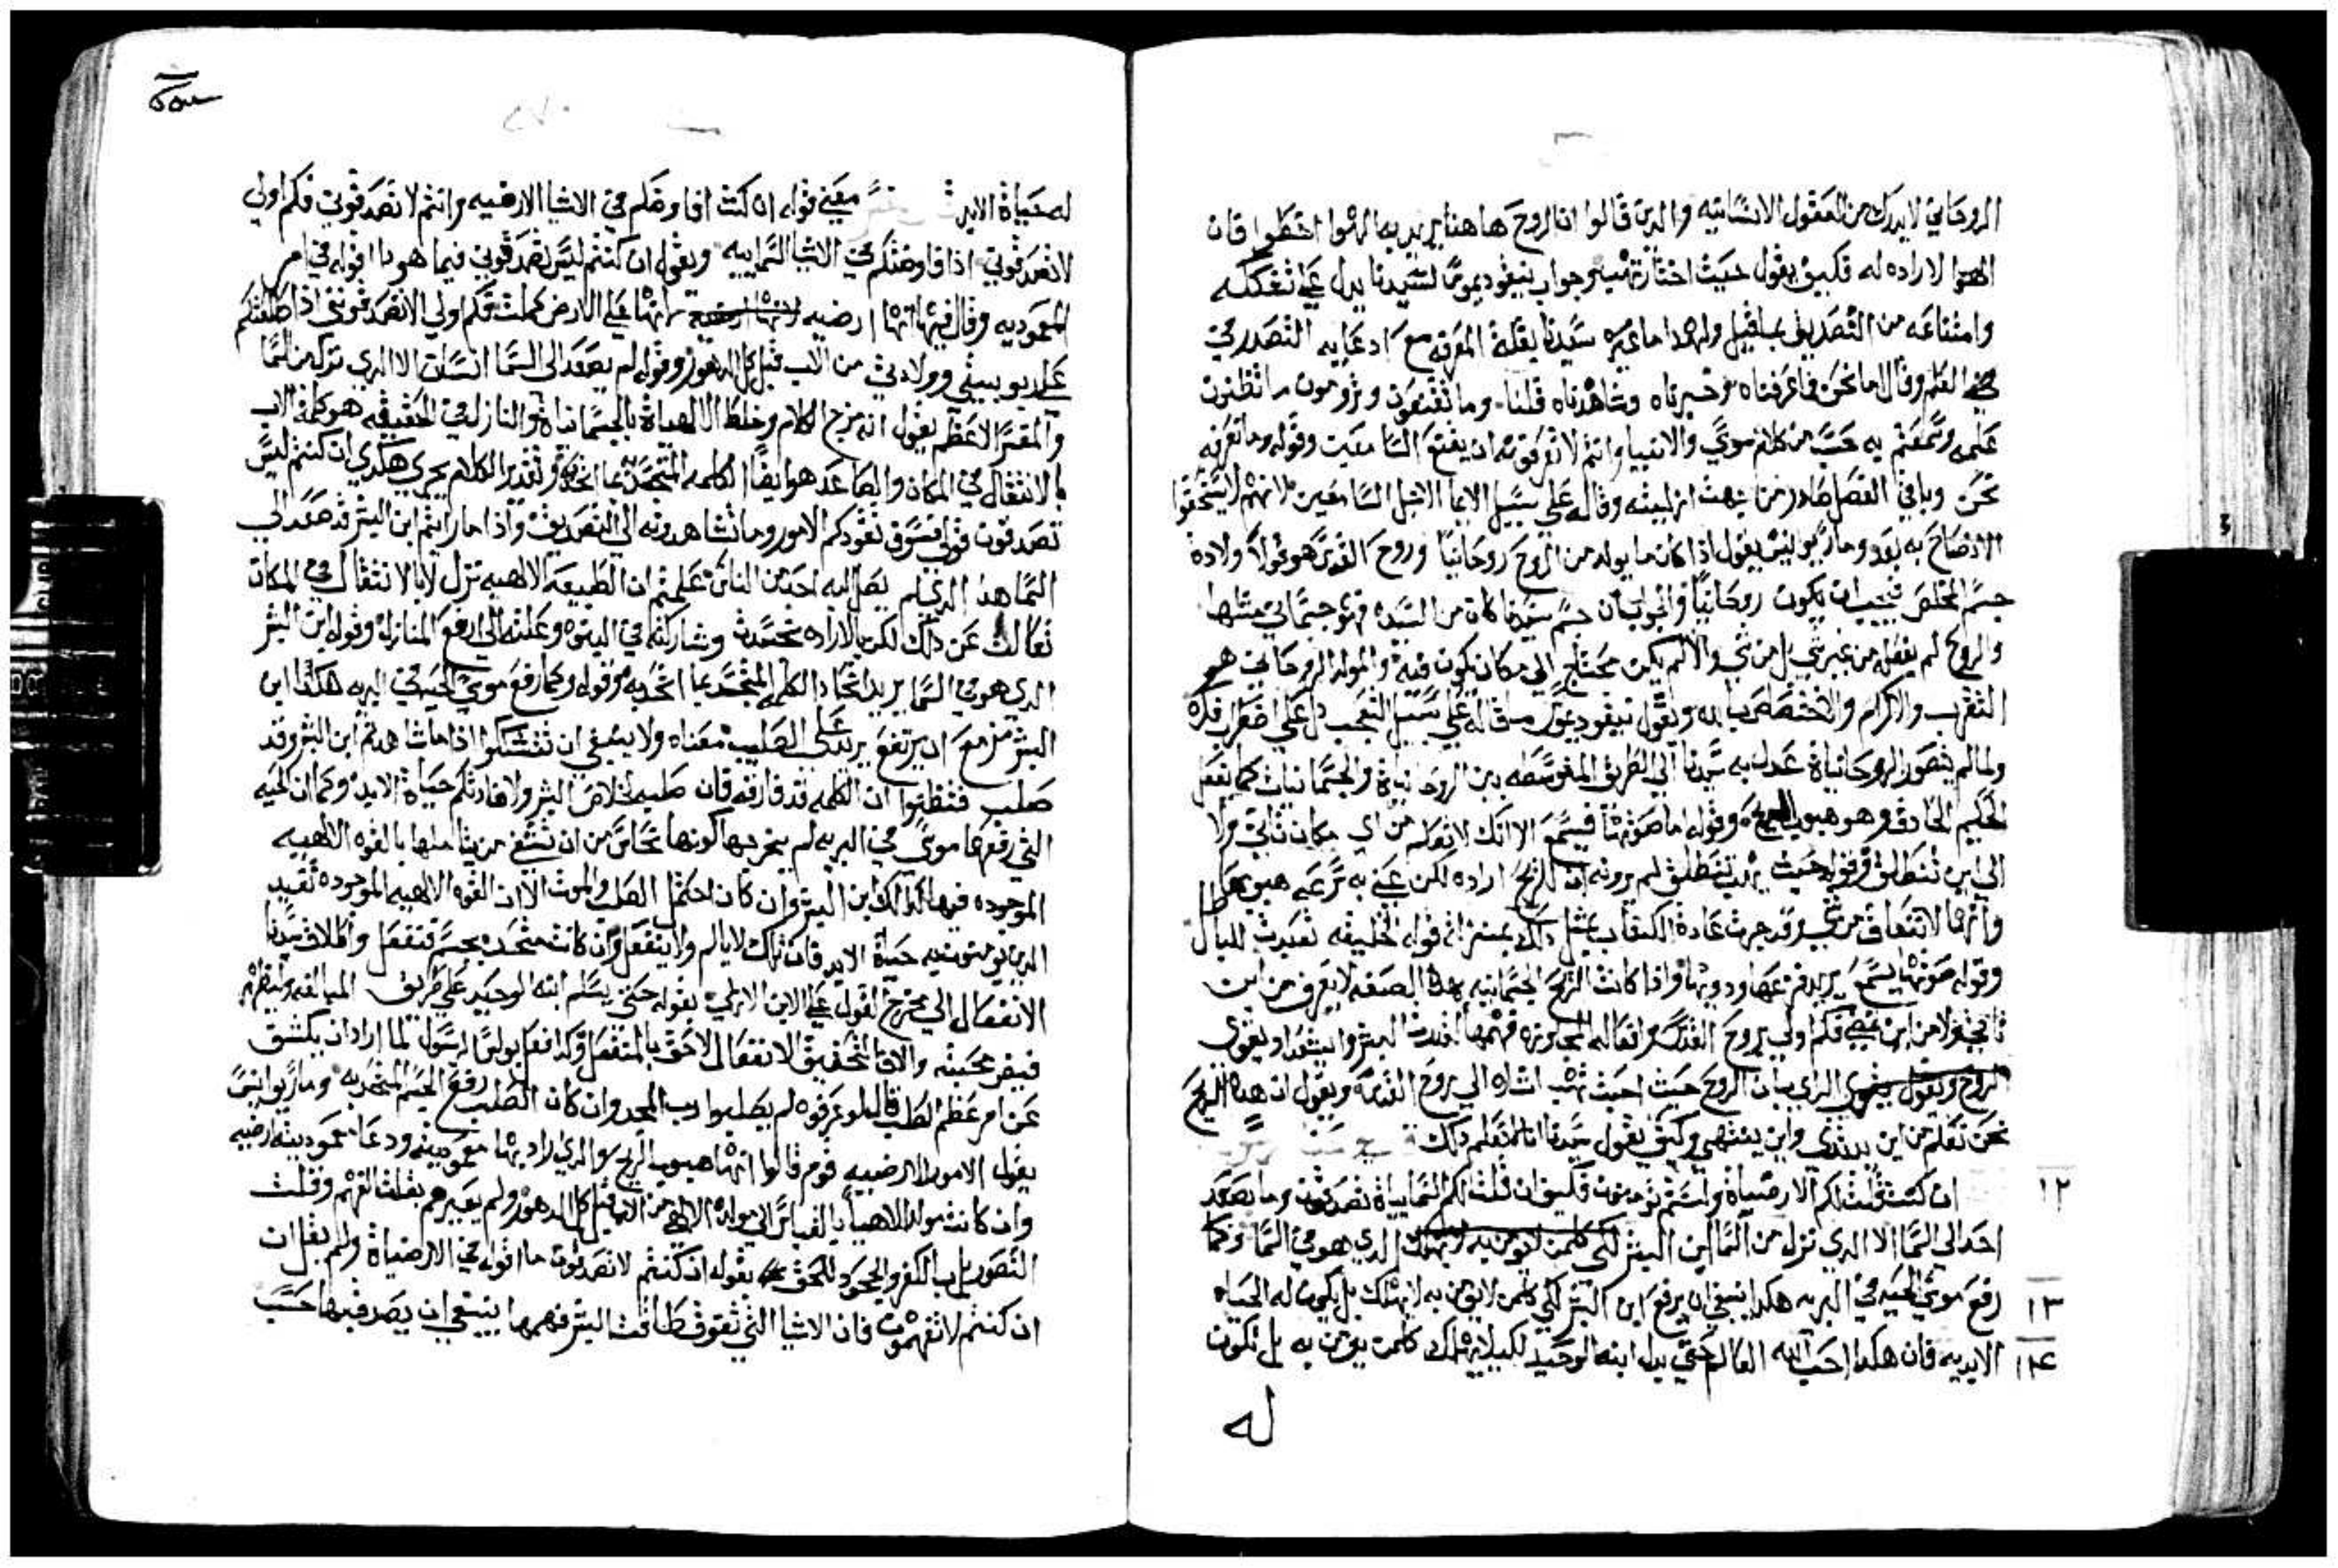 الروحاني لا يدرك من العقول الانسانيه والدين قالوا ان الروح هاهنا يريد به الهوا اخطوا فان
الهوا لا اراده له فكيف يقول حيث اختارت تهب وجواب نيقوديموس لسيدنا يدل علي تشككه
وامتناعه من التصديق بما قيل ولهدا ما عيره سيدنا بقلة المعرفه مع ادعايه التصدر في
العلم وقال اما نحن فما عرفناه وخبرناه وشاهدناه قلنا وما تقتنعون وترومون ما تظنون
علمه وسمعتم به حسب من كلام موسي والانبيا وانتم لا تعرفونه ان يقنع السامعين وقوله وما نعرفه
نحن وباقي الفصل من جهت ازليته وقاله علي سبيل الايما لاجل السامعين لانهم لا يستحقوا
الافصاح به بعد وماري يوانيس يقول اذا كان ما يولد من الروح روحانيا وروح القدس هو ولادة
جسم المخلص فيجب ان يكون روحانيا والجواب ان جسم سيدنا كان من السيده فهو جسماني مثلها
والروح لم يفعله من غير شي بل من شي والا لم يكن محتاج الي مكان يكون فيه والمولد الروحاني هو
التقرب والاكرام والاختصاص بالله وبقول نيقوديموس ما قاله علي سبيل التعجب دل علي اضطراب فكره
ولما لم يتصور الروحانياة عدل به سيدنا الي الطريق المتوسطه بين الروحانياة والجسمانيات كما يفعل
الحكيم الحادق وهو هبوب الريح وقوله اما صوتها فيسمع الا انك لا تعلم من اي مكان تاتي ولا
الي اين تنطلق وقوله حيث تريد تنطلق لم يرد به ان للريح اراده لكن عني به سرعه هبوبها
وانها لا تنعاق من شي وقد جرت عادة الكتاب بمثل دلك بمنزلة قوله الخليقه تعبدت للباطل
وقوله صوتها يسمع يريد قرعها ودويها واذا كانت الريح الجسمانيه بهذه الصفه لا يعرف من اين
تاتي ولا من اين تمضي فكم اولي بروح القدس وافعاله المحاوزه فهمها لقدرت البشر وانيتقداد يقوي
الراي بان الروح حيث احبت تهب اشاره الي روح القدس ويقول ان هذه الريح
نحن نعلم من اين تبتدي واين ينتهي وكيف يقول سيدنا انا لا نعلم دلك
١٢ ان كنت قلت لكم الارضياة ولستم تومنون فكيف ان قلت لكم السماياة تصدقون وما يصعد
احد الي السما الا الدي نزل من السما ابن البشر الدي هو في السما وكما
١٣ رفع موسي الحيه في البريه هكدا ينبغي ان يرفع ابن البشر لكي كلمن يومن به لا يهلك بل يكون له الحياه
١٤ الابديه فان هكدا احب الله العالم حتي بدل ابنه الوحيد لكيلا يهلك كلمن يومن به بل تكون
له
له حياة الابد معني قوله ان كنت افاوضكم في الاشيا الارضيه وانتم لا تصدقوني فكم اولي
لا تصدقوني اذا فاوضتكم في الاشيا السماييه ويقول ان كنتم ليس تصدقوني فيما هودا اقوله في امر
المعموديه وقال فيها انها ارضيه لانها علي الارض كملت فكم اولي الا تصدقونني اذا اطلعتكم
علي ربوبيتي وولادتي من الاب قبل كل الدهور وقوله لم يصعد الي السما انسان الا الدي نزل من السما
والمفسر الاعظم يقول انه مزج الكلام وخلط الالهياة بالجسمانياة والنازل في الحقيقه هو كلمة الاب
لا بانتقال في المكان والصاعد هو ايضا الكلمه المتجسد بما اتحد به وتقدير الكلام يجري هكدي ان كنتم ليس
تصدقون قولي فسوف تقودكم الامور وما تشاهدونه الي التصديق واذا ما رايتم ابن البشر قد صعد الي
السما هدا الدي لم يصل اليه احد من الناس علمتم ان الطبيعه الالهيه نزل لا بالانتقال في المكان
تعالت عن دلك لكن بالاراده تجسدت وشاركته في البنوه وعلته الي ارفع المنازل وقوله ابن البشر
الدي هو في السما يريد اتحاد الكلمه المتجسد بما اتحد به وقوله وكما رفع موسي الحيه في البريه هكدا ابن
البشر مزمع ان يرتفع يريد علي الصليب معناه ولا ينبغي ان تتشككوا اذا ما شاهدتم ابن البشر وقد
صلب فتظنوا ان الكلمه قد فارقته فان صلبه لخلاص البشر ولافادتكم حياة الابد وكما ان الحيه
التي رفعها موسي في البريه لم يخرجها كونها نحاس من ان تشفي من يتاملها بالقوه الالهيه
الموجوده فيها كدلك ابن البشر وان كان احتمل الصلب والموت الا ان القوه الالهيه الموجوده تفيد
الدين يومنون به حياة الابد فان تلك لا يالم ولا ينفعل وان كانت متحده بجسم تنفعل واطلاق سيدنا
الانفعال الي مخرج القول علي الابن الازلي بقوله حتي يسلم ابنه الوحيد علي طريق المبالغه وليظهر
فيضر محبته والا فالتحقيق الانفعال لاحق بالمنفعل وكدا فعل بولس الرسول لما اراد ان يكشف
عن امر عظم الصلب قال لو عرفوه لم يصلبوا رب المجد وان كان الصلب رفع الجسم المتحد به وماري يوانيس
يقول الامور الارضيه قوم قالوا انها هبوب الريح والدي اراد بها معموديته ودعا معموديته ارضيه
وان كانت مولدا الاهيا بالقياس الي مولده الالهي من الاب قبل كل الدهور ولم يعيرهم بقلت الفهم وقلت
التصور بل بالكفر والجحود للحق بقوله ان كنتم لا تصدقون ما اقوله في الارضياة ولم يقل ان
ان كنتم لا تفهمون فان الاشيا التي تفوق طاقت البشر فهمها ينبغي ان يصدق بها حسب